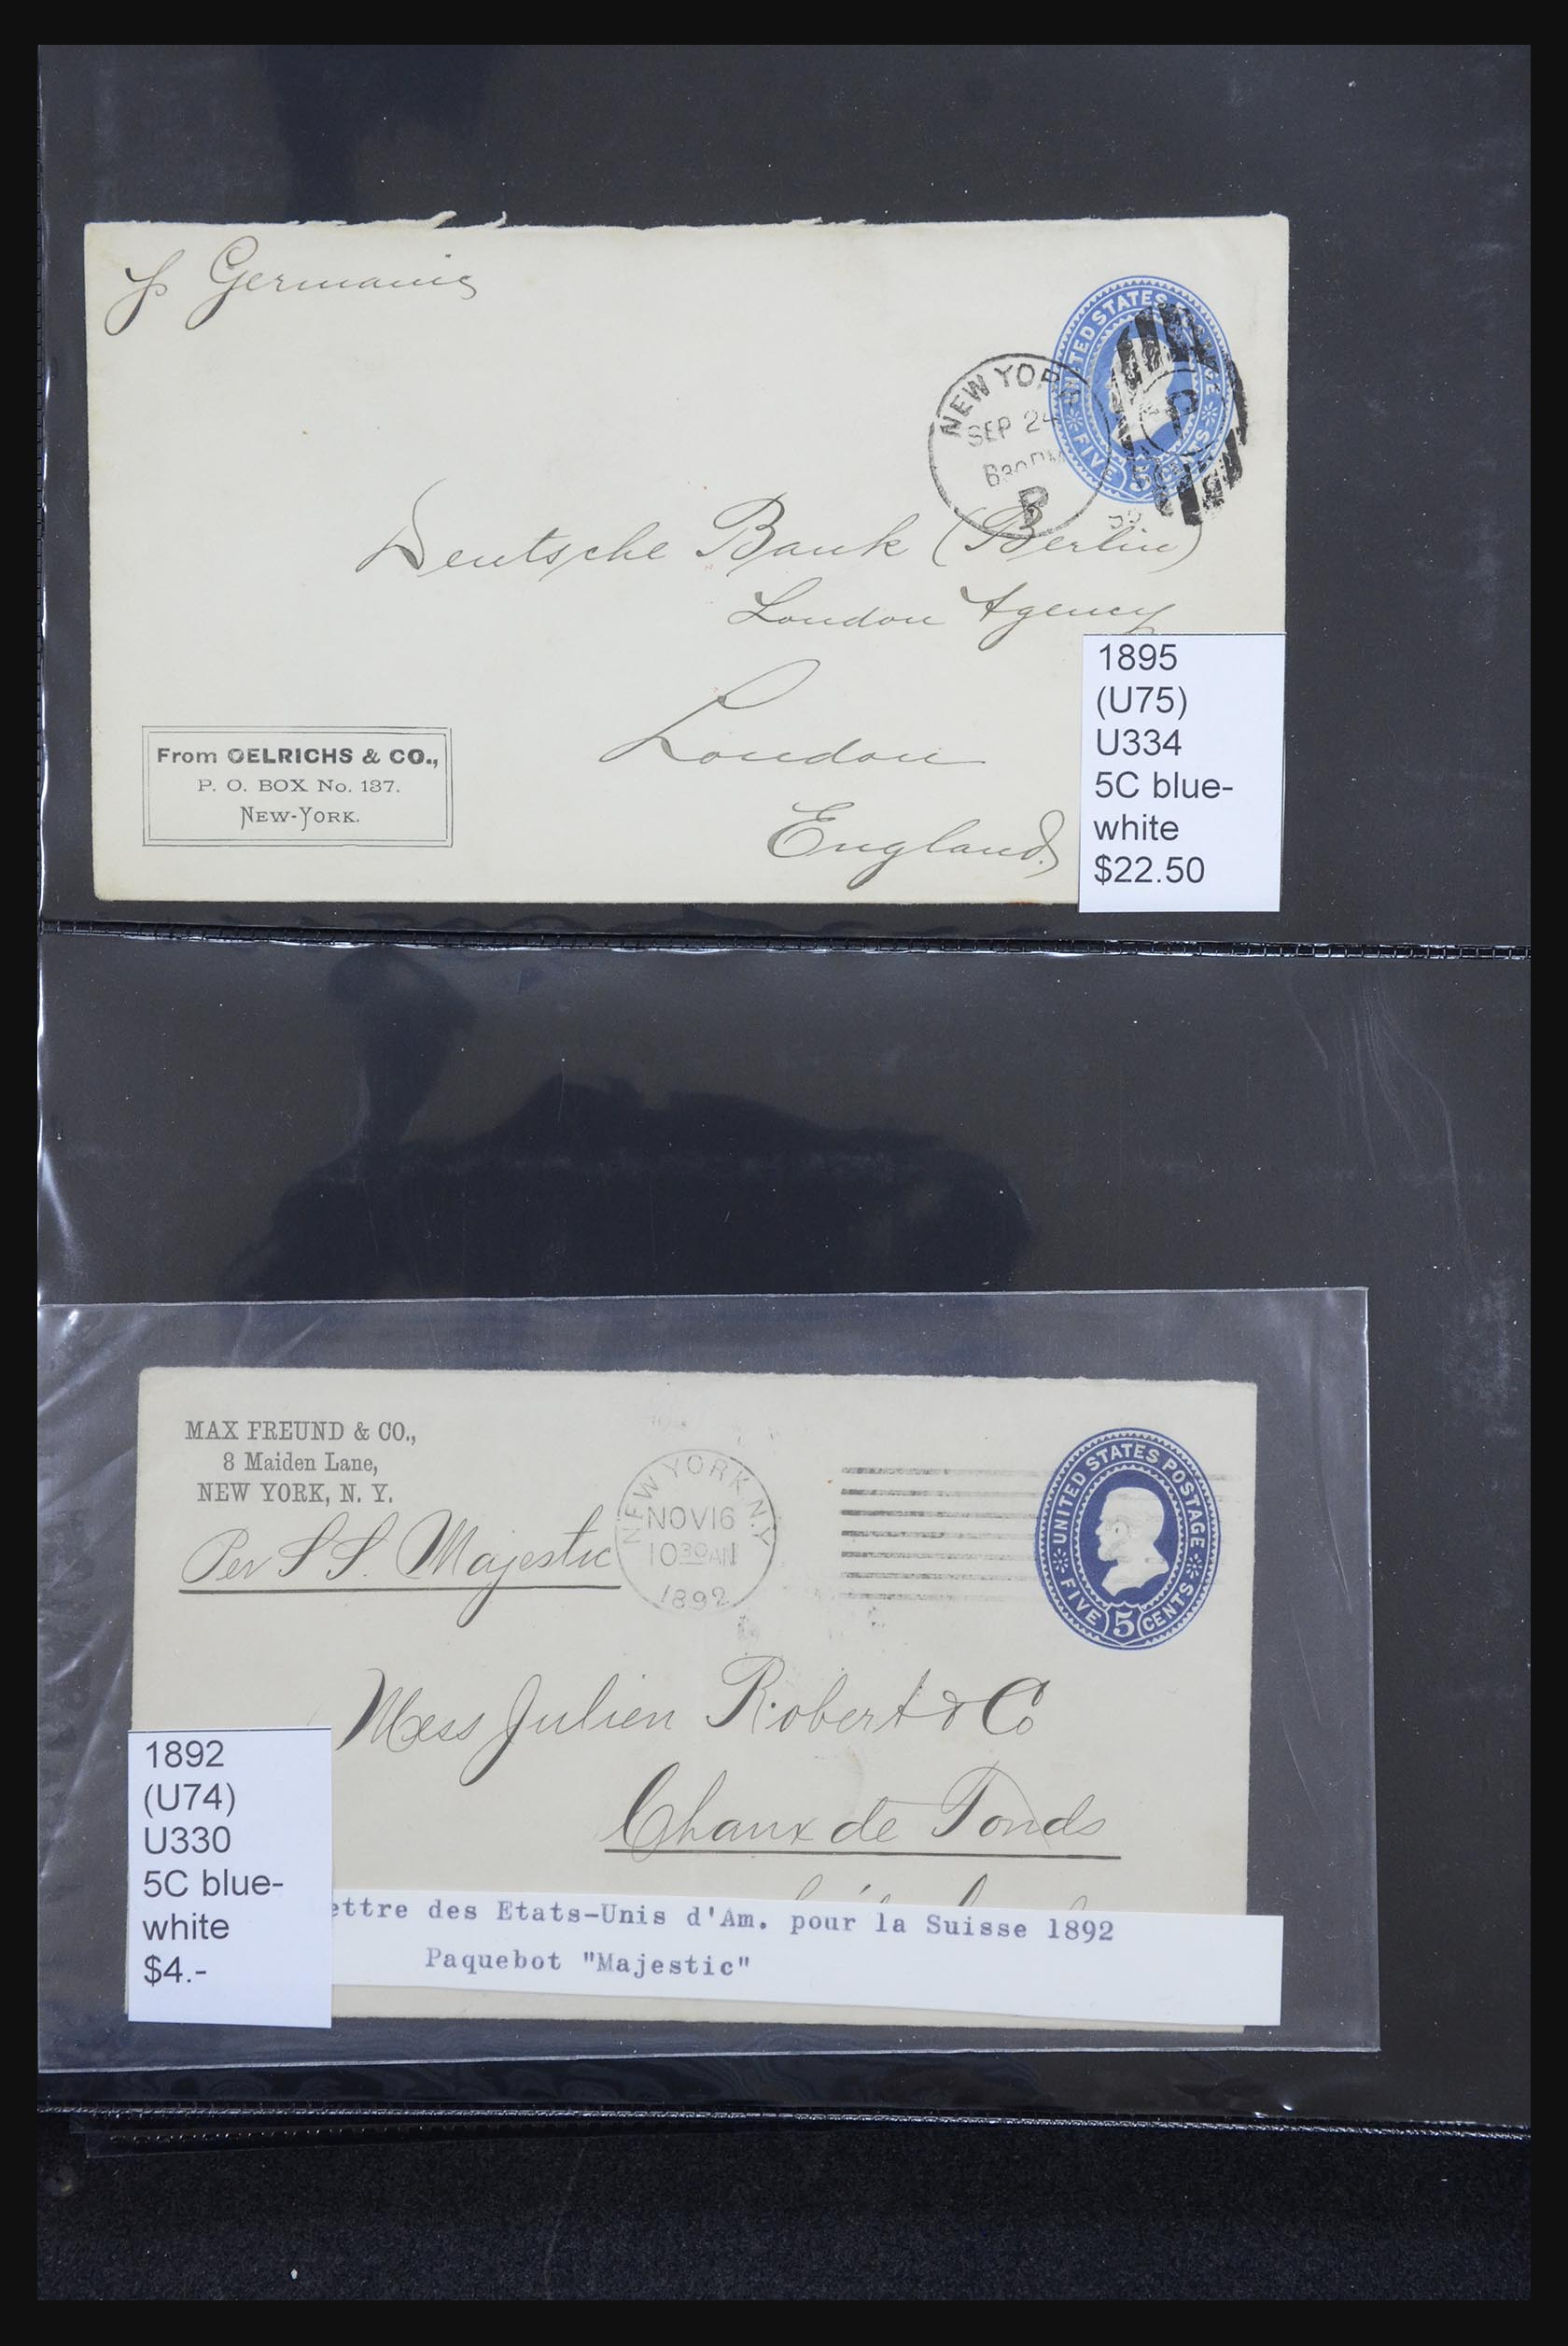 p Germanic
UNITED STATES
FIVE 5 CENTS
NEW YOR
SEP 24
630PM
P
Deutsche Bank (Berlin)
London Agency
London
England.
From OELRICHS & CO.,
P. O. BOX No. 137.
NEW-YORK.
1895
(U75)
U334
5C blue-
white
$22.50
MAX FREUND & CO.,
8 Maiden Lane,
NEW YORK, N. Y.
Per S S. Majestic
NEW YORK N.Y
NOV 16
1030AM
1892
UNITED STATES POSTAGE
FIVE 5 CENTS
Mess Julien Robert & Co
Chaux de Fonds
1892
(U74)
U330
5C blue-
white
$4.-
ettre des Etats-Unis d'Am. pour la Suisse 1892
Paquebot "Majestic"